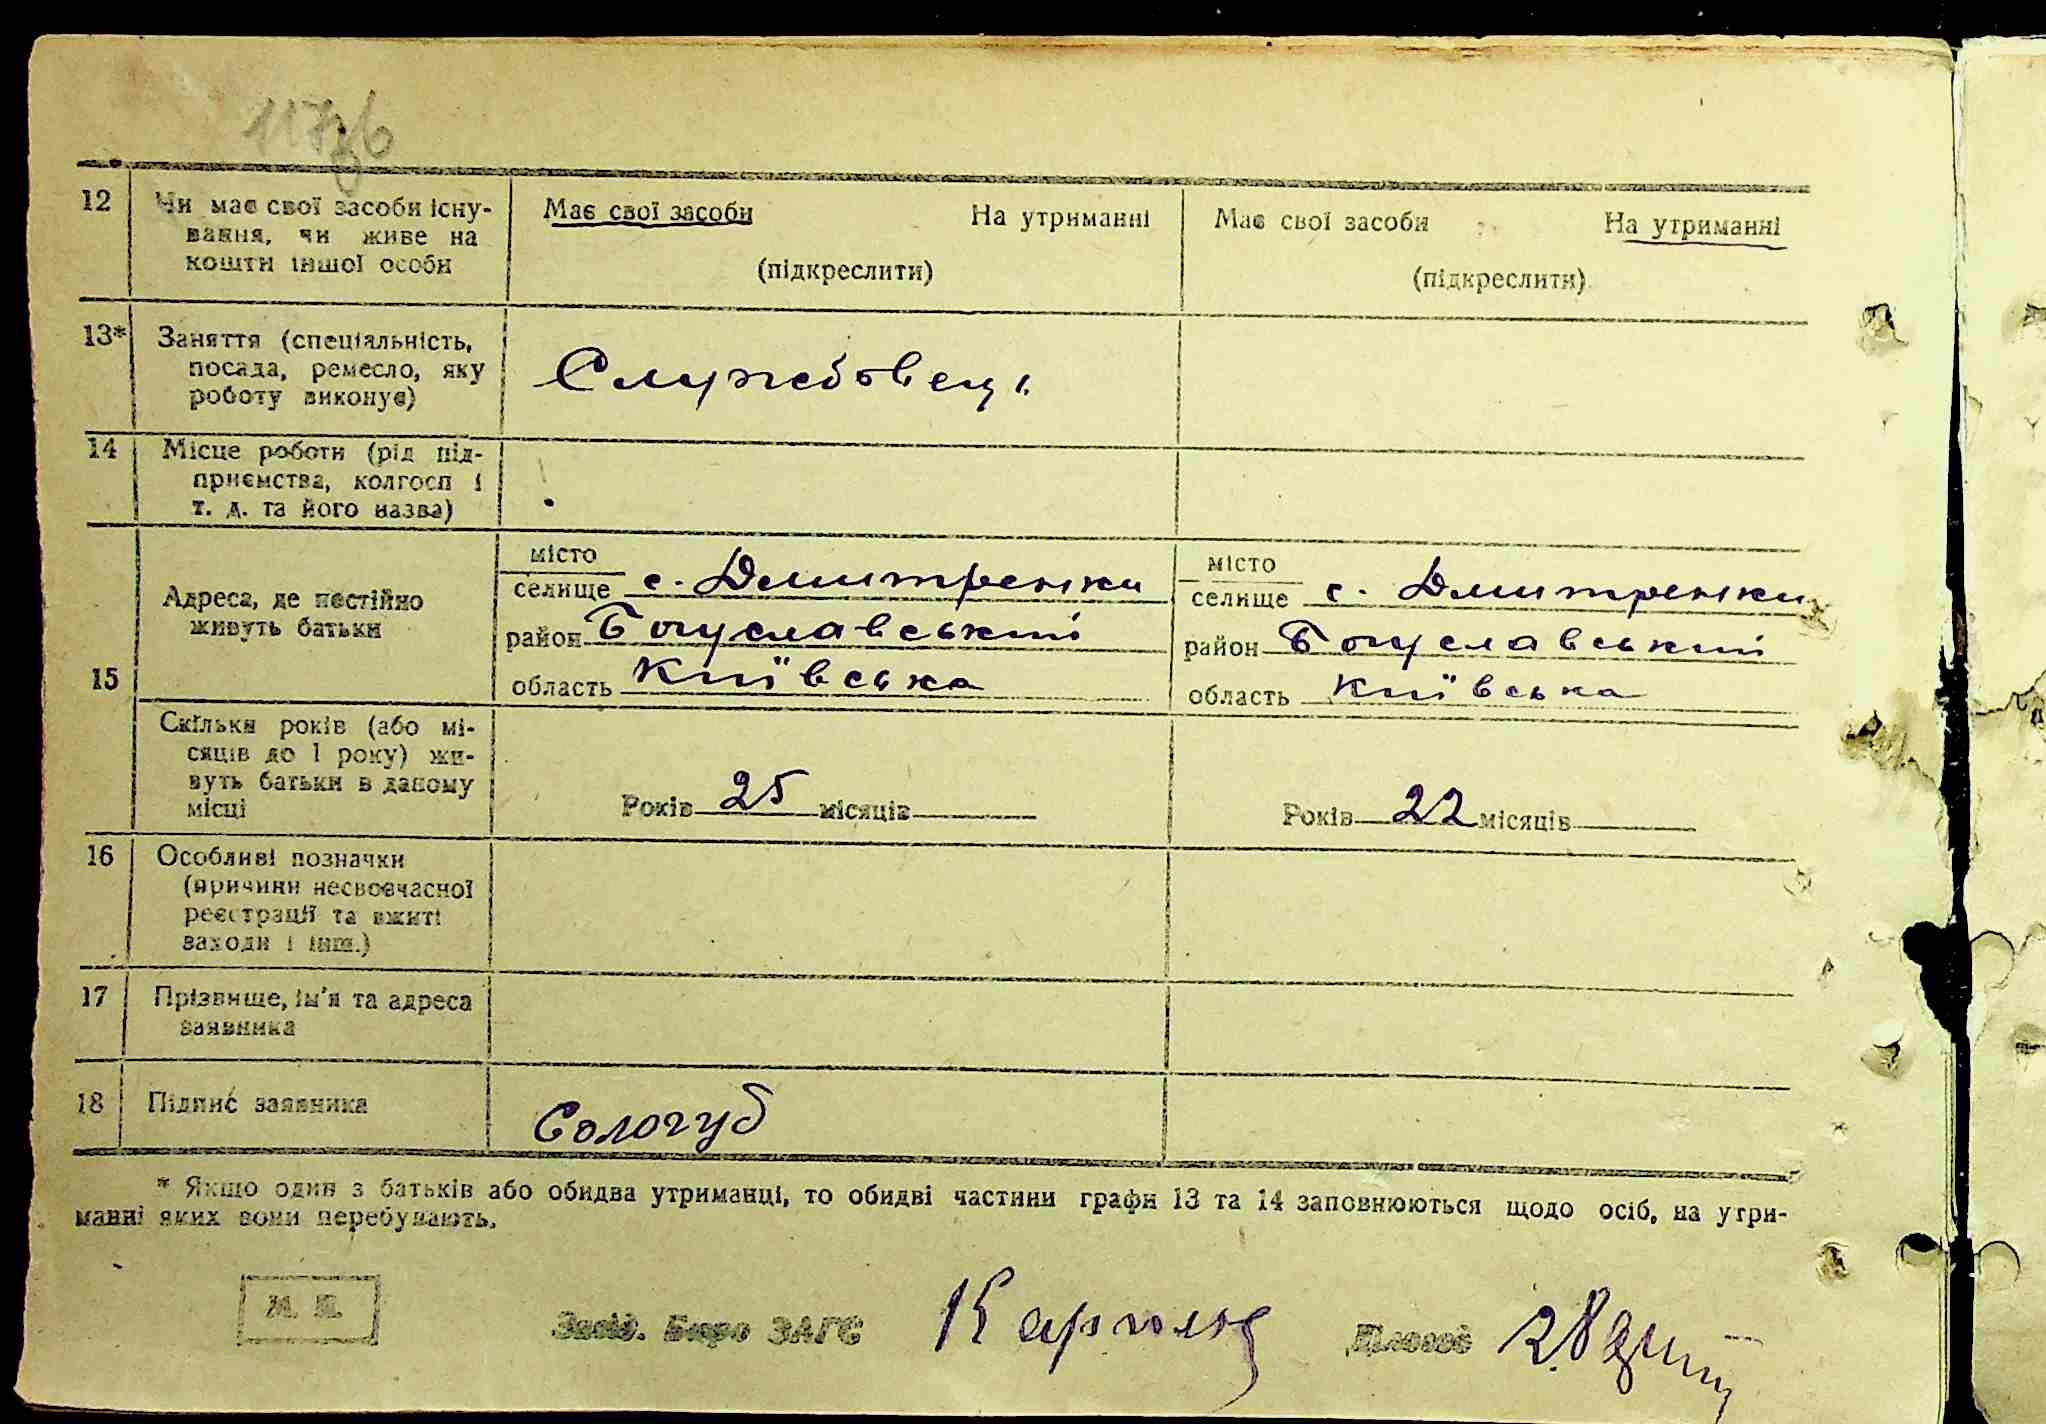 12
Чи має свої засоби існу-
вання, чи живе на
кошти іншої особи
Має свої засоби На утриманні
(підкреслити)
Має свої засоби На утриманні
(підкреслити)
13*
Заняття (спеціяльність,
посада, ремесло, яку
роботу виконує)
Службовець
14
Місце роботи (рід під-
приємства, колгосп і
т. д. та його назва)
15
Адреса, де постійно
живуть батьки
місто
селище с. Дмитренки
район Богуславський
область Київська
місто
селище с. Дмитренки
район Богуславський
область Київська
Скільки років (або мі-
сяців до 1 року) жи-
вуть батьки в даному
місці
Років 25 місяців
Років 22 місяців
16
Особливі позначки
(причини несвоєчасної
реєстрації та вжиті
заходи і інш.)
17
Прізвище, ім'я та адреса
заявника
18
Підпис заявника
Сологуб
* Якщо один з батьків або обидва утриманці, то обидві частини графи 13 та 14 заповнюються щодо осіб, на утри-
манні яких вони перебувають.
М. П.
Завід. Бюро ЗАГС
Діловод